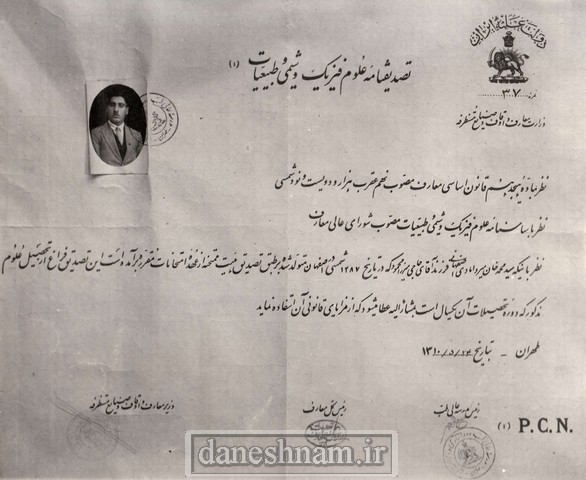 دولت علیّه ایران
نمره ۳۰۷
وزارت معارف و اوقاف و صنایع مستظرفه
تصدیقنامه علوم فیزیک و شیمی و طبیعیات (۱)
نظر بماده هیجدهم قانون اساسی معارف مصوب نهم عقرب هزار و دویست و نود شمسی
نظر باساسنامه علوم فیزیک و شیمی و طبیعیات مصوب شورای عالی معارف
نظر باینکه سید محمد خان میردامادی فرزند آقای حاجی میر محمد که در تاریخ ۱۲۸۷ شمسی در اصفهان متولد شده بر طبق تصدیق هیئت ممتحنه از عهده امتحانات مقرره برآمده است این تصدیق فراغ از تحصیل علوم
مذکور که دوره تحصیلات آن یکسال است بمشارالیه عطا میشود که از مزایای قانونی آن استفاده نماید
طهران - بتاریخ ۱۳۱۰
رئیس مدرسه عالی طب
رئیس کل معارف
وزیر معارف و اوقاف و صنایع مستظرفه
(۱) P.C.N.
daneshnam.ir